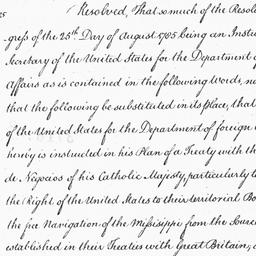 25
Resolved, That so much of the Resolu
gress of the 25th Day of August 1785 being an Instu
Secretary of the United States for the Department of
Affairs as is contained in the following Words, n
that the following be substituted in its place, that
of the United States for the Department of foreign
hereby is instructed in his Plan of a Treaty with th
de Negocios of his Catholic Majesty, particularly to
the Right of the United States to their territorial Bo
the free Navigation of the Missisippi from the Source
established in their Treaties with Great Britain, a